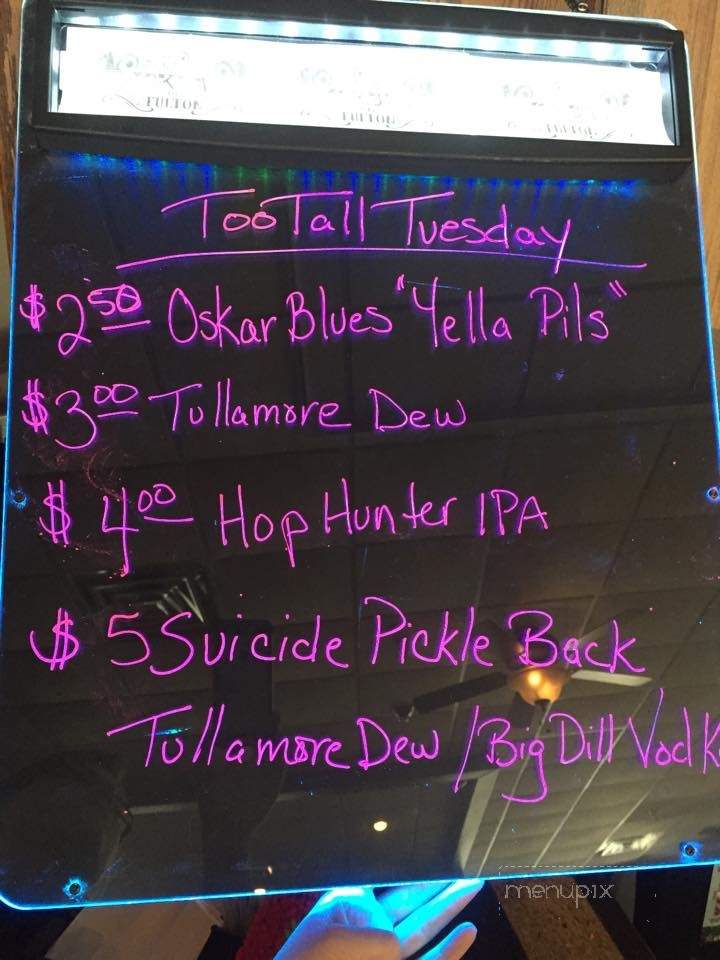 FULTON FULTON FULTON
Too Tall Tuesday
$2.50 Oskar Blues "Yella Pils"
$3.00 Tullamore Dew
$4.00 Hop Hunter IPA
$5 Suicide Pickle Back
Tullamore Dew / Big Dill Vodk
menupix